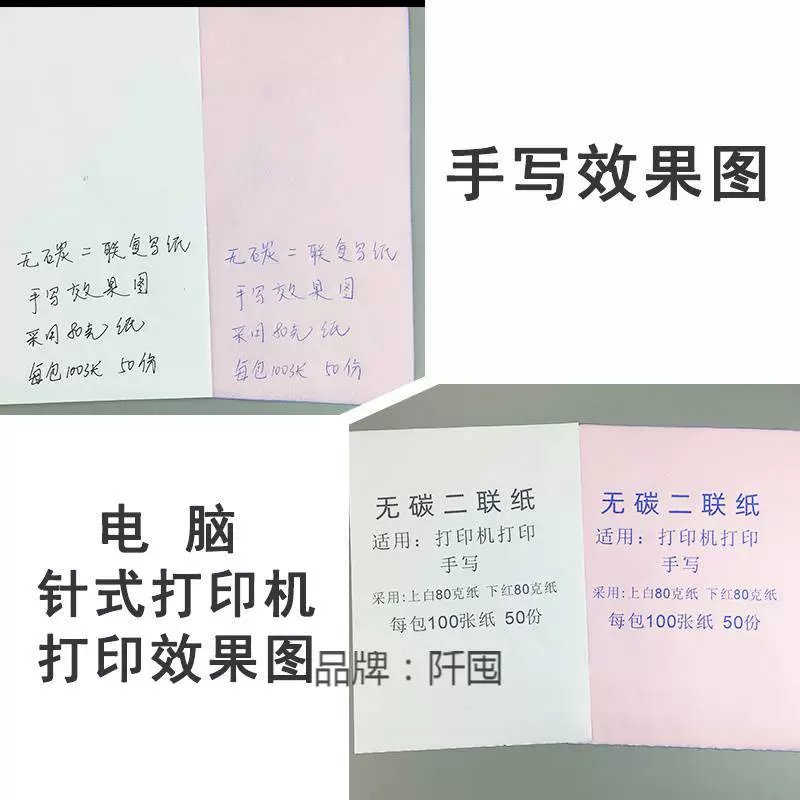 无碳二联复写纸
手写效果图
采用80克纸
每包100张 50份
无碳二联复写纸
手写效果图
采用80克纸
每包100张 50份
手写效果图
电脑
针式打印机
打印效果图
品牌：阡囤
无碳二联纸
适用：打印机打印
手写
采用：上白80克纸 下红80克纸
每包100张纸 50份
无碳二联纸
适用：打印机打印
手写
采用：上白80克纸 下红80克纸
每包100张纸 50份